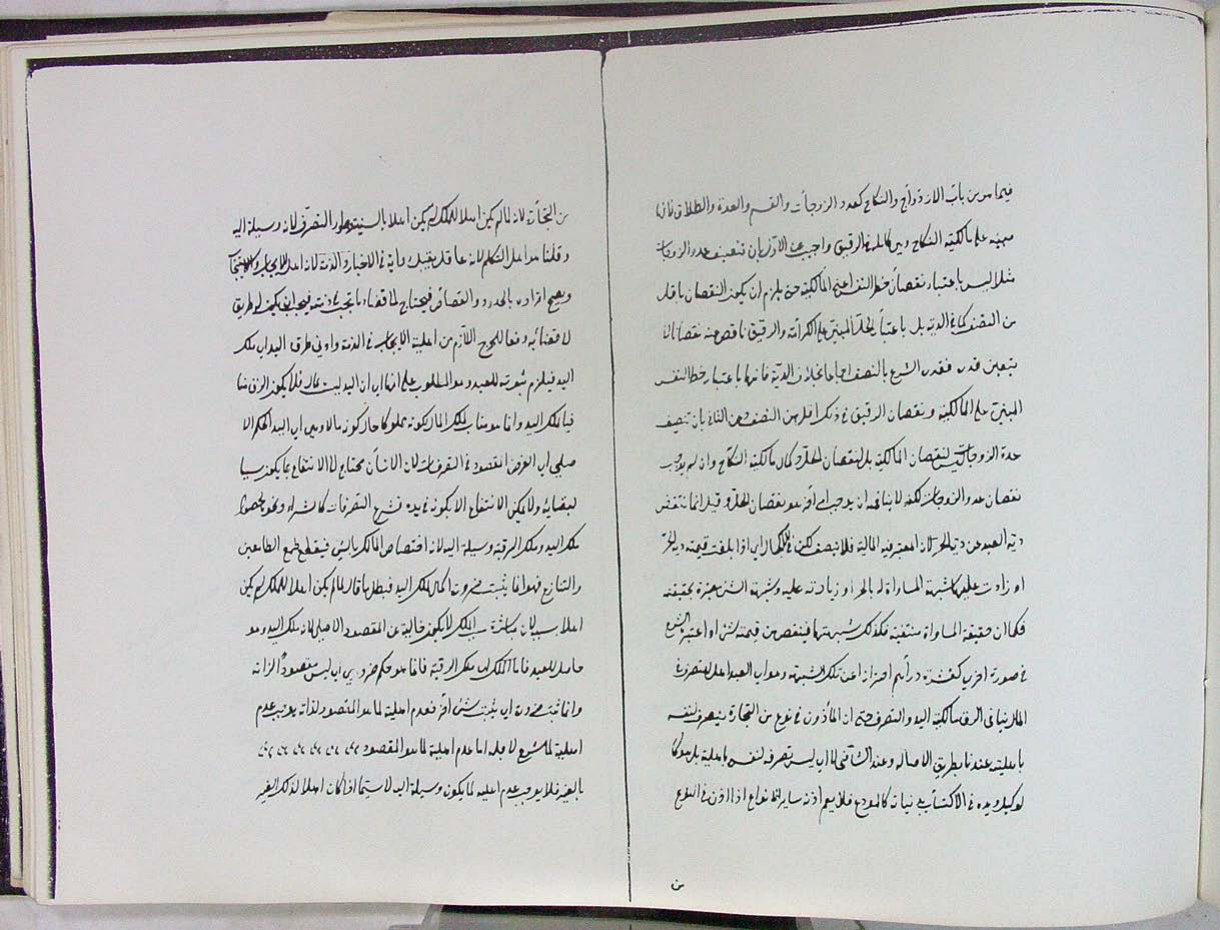 فيما هو من باب الازدواج والنكاح كعدد الزوجات والقسم والعدة والطلاق فانها
مبنية على مالكية النكاح وهي كاملة في الرقيق واجيب عن الاول بان تنصيف عدد الزوجات
مثلا ليس باعتبار نقصان خطر النفس اعني المالكية حتى يلزم ان يكون النقصان باقل
من النصف كما في الدية بل باعتبار الحل المبني على الكرامة والرقيق ناقص فيه نقصانا لا
يتعين قدره فقدره الشرع بالنصف اجماعا بخلاف الدية فانها باعتبار خطر النفس
المبني على المالكية ونقصان الرقيق في ذلك اقل من النصف وعن الثاني بان تنصيف
عدة الزوجات ليس لنقصان المالكية بل لنقصان الحل وكمال مالكية النكاح وان لم يوجب
نقصان عدد الزوجات لكنه لا ينافي ان يوجبه امر آخر هو نقصان الحل وقيل انما تنتقص
دية العبد عن دية الحر لان المعتبر فيه المالية فلا تنصف لكن في الكمال اي اذا بلغت قيمته دية الحر
او زادت عليها شبهة المساواة له بالحر او زيادته عليه وشبهة الشيء معتبرة بحقيقته
فكما ان حقيقة المساواة منتفية فكذلك شبهتها فينقص من قيمته شيء اعتبره الشرع
في صورة اخرى كعشرة دراهم احترازا عن تلك الشبهة وهو اي العبد اهل للتصرف في
المال ينافي الرق مالكية اليد والتصرف حتى ان المأذون في نوع من التجارة يتصرف لنفسه
باهليته عندنا بطريق الاصالة وعند الشافعي لا اي ليس تصرفه لنفسه باهليته بل هو كا
لوكيل ويده في الاكتساب يد نيابة كالمودع فلا يعم اذنه ساير الانواع اذا اذن في النوع
من
من التجارة لانه لما لم يكن اهلا للملك لم يكن اهلا لسببه وهو التصرف لانه وسيلة اليه
وقلنا هو اهل للتكلم لانه عاقل يقبل روايته في الاخبار والذمة لانه اهل للايجاب والاستيجاب
ويصح اقراره بالحدود والقصاص فيحتاج لما قضاء ما يجب في ذمته فيجب ان يكون له طريق
لا قضائه دفعا للحرج اللازم من اهلية الايجاب في الذمة وادنى طرق اليد اي ملك
اليد فيلزم ثبوته للعبد وهو المطلوب على انها اي ان اليد ليست بمال فلا يكون الرق منا
فيا لملك اليد وانما هو مناف لملك المال لكونه مملوكا حال كونه مالا وهي اي اليد الحكم الا
صلي اي الغرض المقصود في التصرفات لان الانسان محتاج الى الانتفاع بما يكون سببا
لبقائه ولا يمكن الانتفاع الا بكونه في يده فشرع التصرفات كالشراء ونحوه لحصول
ملك اليد وملك الرقبة وسيلة اليه لانه اختصاص المالك بالشيء فيقطع طمع الطامعين
والتنازع فهو انما يثبت ضرورة اكمال ملك اليد فبطل ما قال لما لم يكن اهلا للملك لم يكن
اهلا لسببه لان مباشرة سبب الملك لا يكون خالية عن المقصود الاصلي لان ملك اليد وهو
حاصل للعبد فاما الملك اي ملك الرقبة فانما هو حكم ضروري اي ليس مقصودا لذاته
وانما ثبت ضرورة اي يثبت شيء آخر فعدم اهلية لما هو المقصود لذاته يوجب عدم
اهلية لما شرع لاجله اما عدم اهلية لما هو المقصود
بالغير فلا يوجب عدم اهلية لما يكون وسيلة اليه لاسيما اذا كان اهلا لذلك الغير